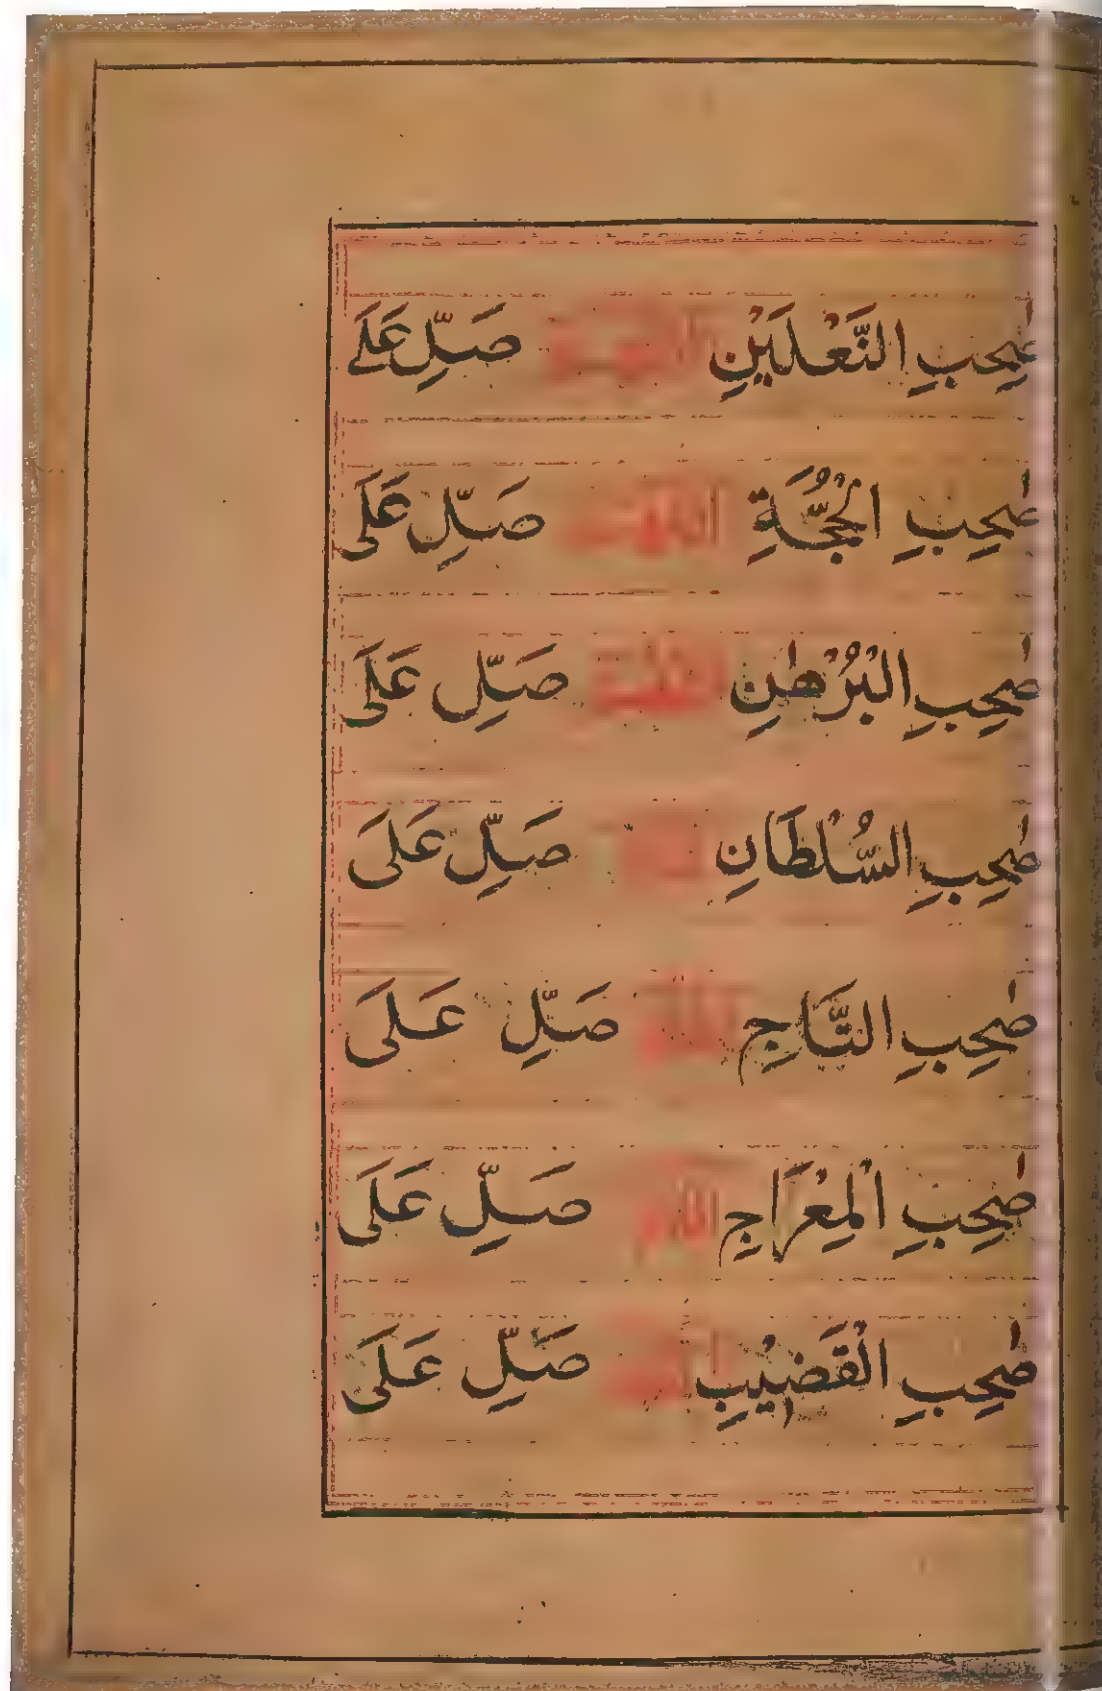 صٰحِبِ النَّعْلَيْنِ اللهم صَلِّ عَلَى
صٰحِبِ الْحُجَّةِ اللهم صَلِّ عَلَى
صٰحِبِ الْبُرْهٰنِ اللهم صَلِّ عَلَى
صٰحِبِ السُّلْطَانِ صَلِّ عَلَى
صٰحِبِ التَّاجِ اللهم صَلِّ عَلَى
صٰحِبِ الْمِعْرَاجِ اللهم صَلِّ عَلَى
صٰحِبِ الْقَضِيْبِ صَلِّ عَلَى